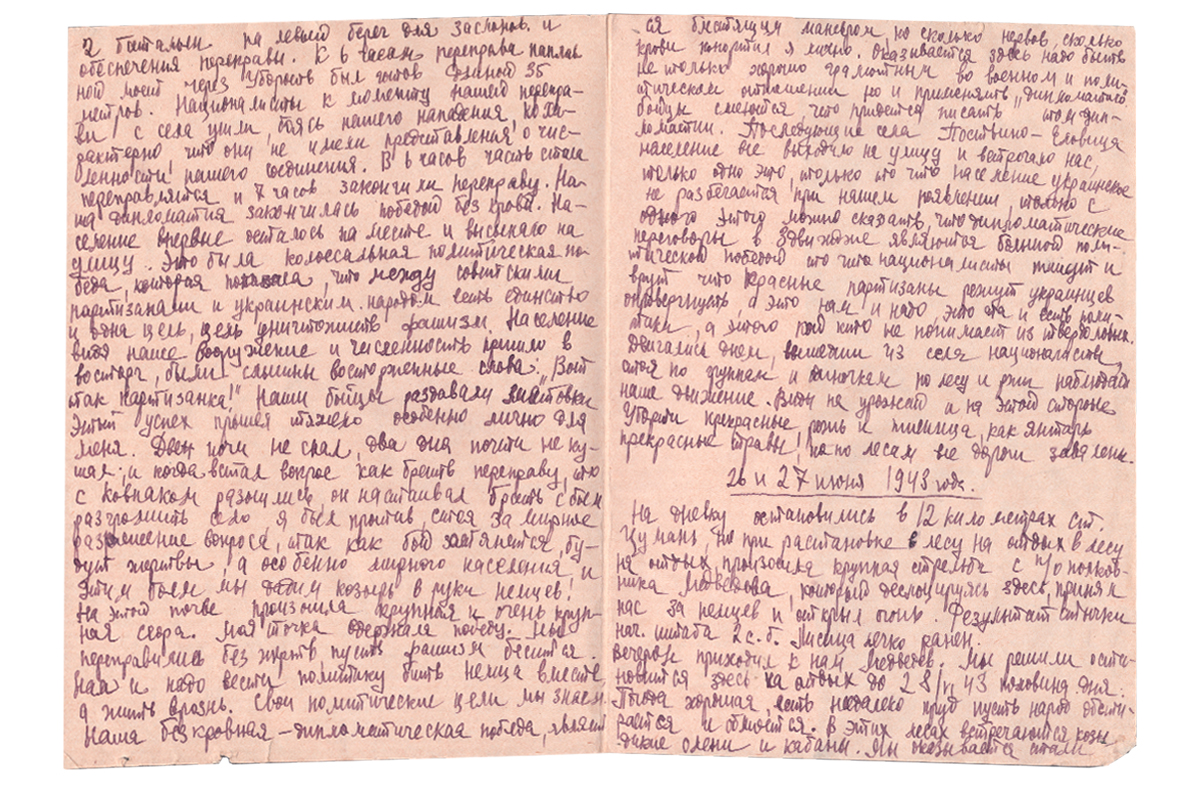 2 батальон на левый берег для заслонов и
обеспечения переправы. К 6 часам переправа наплав
ной мост через Уборость был готов длиной 35
метров. Националисты к моменту нашей перепра-
вы с села ушли, боясь нашего нападения, хотя-
рактерно, что они не имели представления о чис-
ленности нашего соединения. В 6 часов часть стала
переправлятся и 7 часов закончили переправу. На-
ша дипломатия закончилась победой без крови. На-
селение впервые осталось на месте и высыпало на
улицу. Это была колоссальная политическая по-
беда, которая показала, что между советскими
партизанами и украинским народом есть единство
и одна цель, цель уничтожить фашизм. Население
видя наше вооружение и численность пришло в
восторг, были слышны восторженные слова: "Вот
так партизанка!" Наши бойцы раздавали листовки
Этот успех пришел тяжело особенно лично для
меня. Двои ночи не спал, два дня почти не ку-
шал, и когда встал вопрос как брать переправу, то
с Ковпаком разошлись, он настаивал брать с боем
разгромить село я был против, стоя за мирное
разрешение вопроса, так как бой затянется, бу-
дут жертвы, а особенно мирного населения, и
этим боем мы дадим козырь в руки немцев.
На этой почве произошла крупная и очень круп-
ная ссора. Моя точка одержала победу. Мы
переправились без жертв пусть фашизм бесится.
Нам и надо вести политику бить немца вместе,
а жить врозь. Свои политические цели мы знаем
Наша безкровная - дипломатическая победа, являет
ся блестящим маневром, но сколько нервов, сколько
крови попортил я лично. Оказывается здесь надо быть
не только хорошо грамотным во военном и поли-
тическом отношении но и применять "дипломатию"
бойцы смеются что придется писать ноты дип-
ломатии. Последующие села Постойно - Еловица
население все выходило на улицу и встречало нас,
только одно это, только то что население украинское
не разбегается при нашем появлении, только с
одного этого можно сказать, что дипломатические
переговоры в Здвиждже являются большой поли-
тической победой то что националисты пишут и
врут что красные партизаны режут украинцев
опровергнуть, а это нам и надо, это эта и есть поли-
тика, а этого кой кто не понимает из твердолобых.
Двигались днем, вышедши из села националисты
стоя по группам и одиночкам по лесу и ржи наблюдали
наше движение. Виды на урожай и на этой стороне
Уборти прекрасные, рожь и пшеница, как янтарь
прекрасные травы, но по лесам все дороги завалены.
26 и 27 июня 1943 года.
На дневку остановились в 12 километрах ст.
Цумань, но при расстановке в лесу на отдых в лесу
на отдых произошла крупная стрельба с п/о полков-
ника Медведева, который дислоцируясь здесь, принял
нас за немцев и открыл огонь. Результат стычки
нач. штаба 2 с.б. Лисица легко ранен.
Вечером приходил к нам Медведев. Мы решили оста-
новится здесь на отдых до 28/VI 43 половина дня.
Погода хорошая, есть недалеко пруд пусть народ обсти-
рается и обмоется. В этих лесах встречаются козы
дикие олени и кабаны. Мы оказывается стали